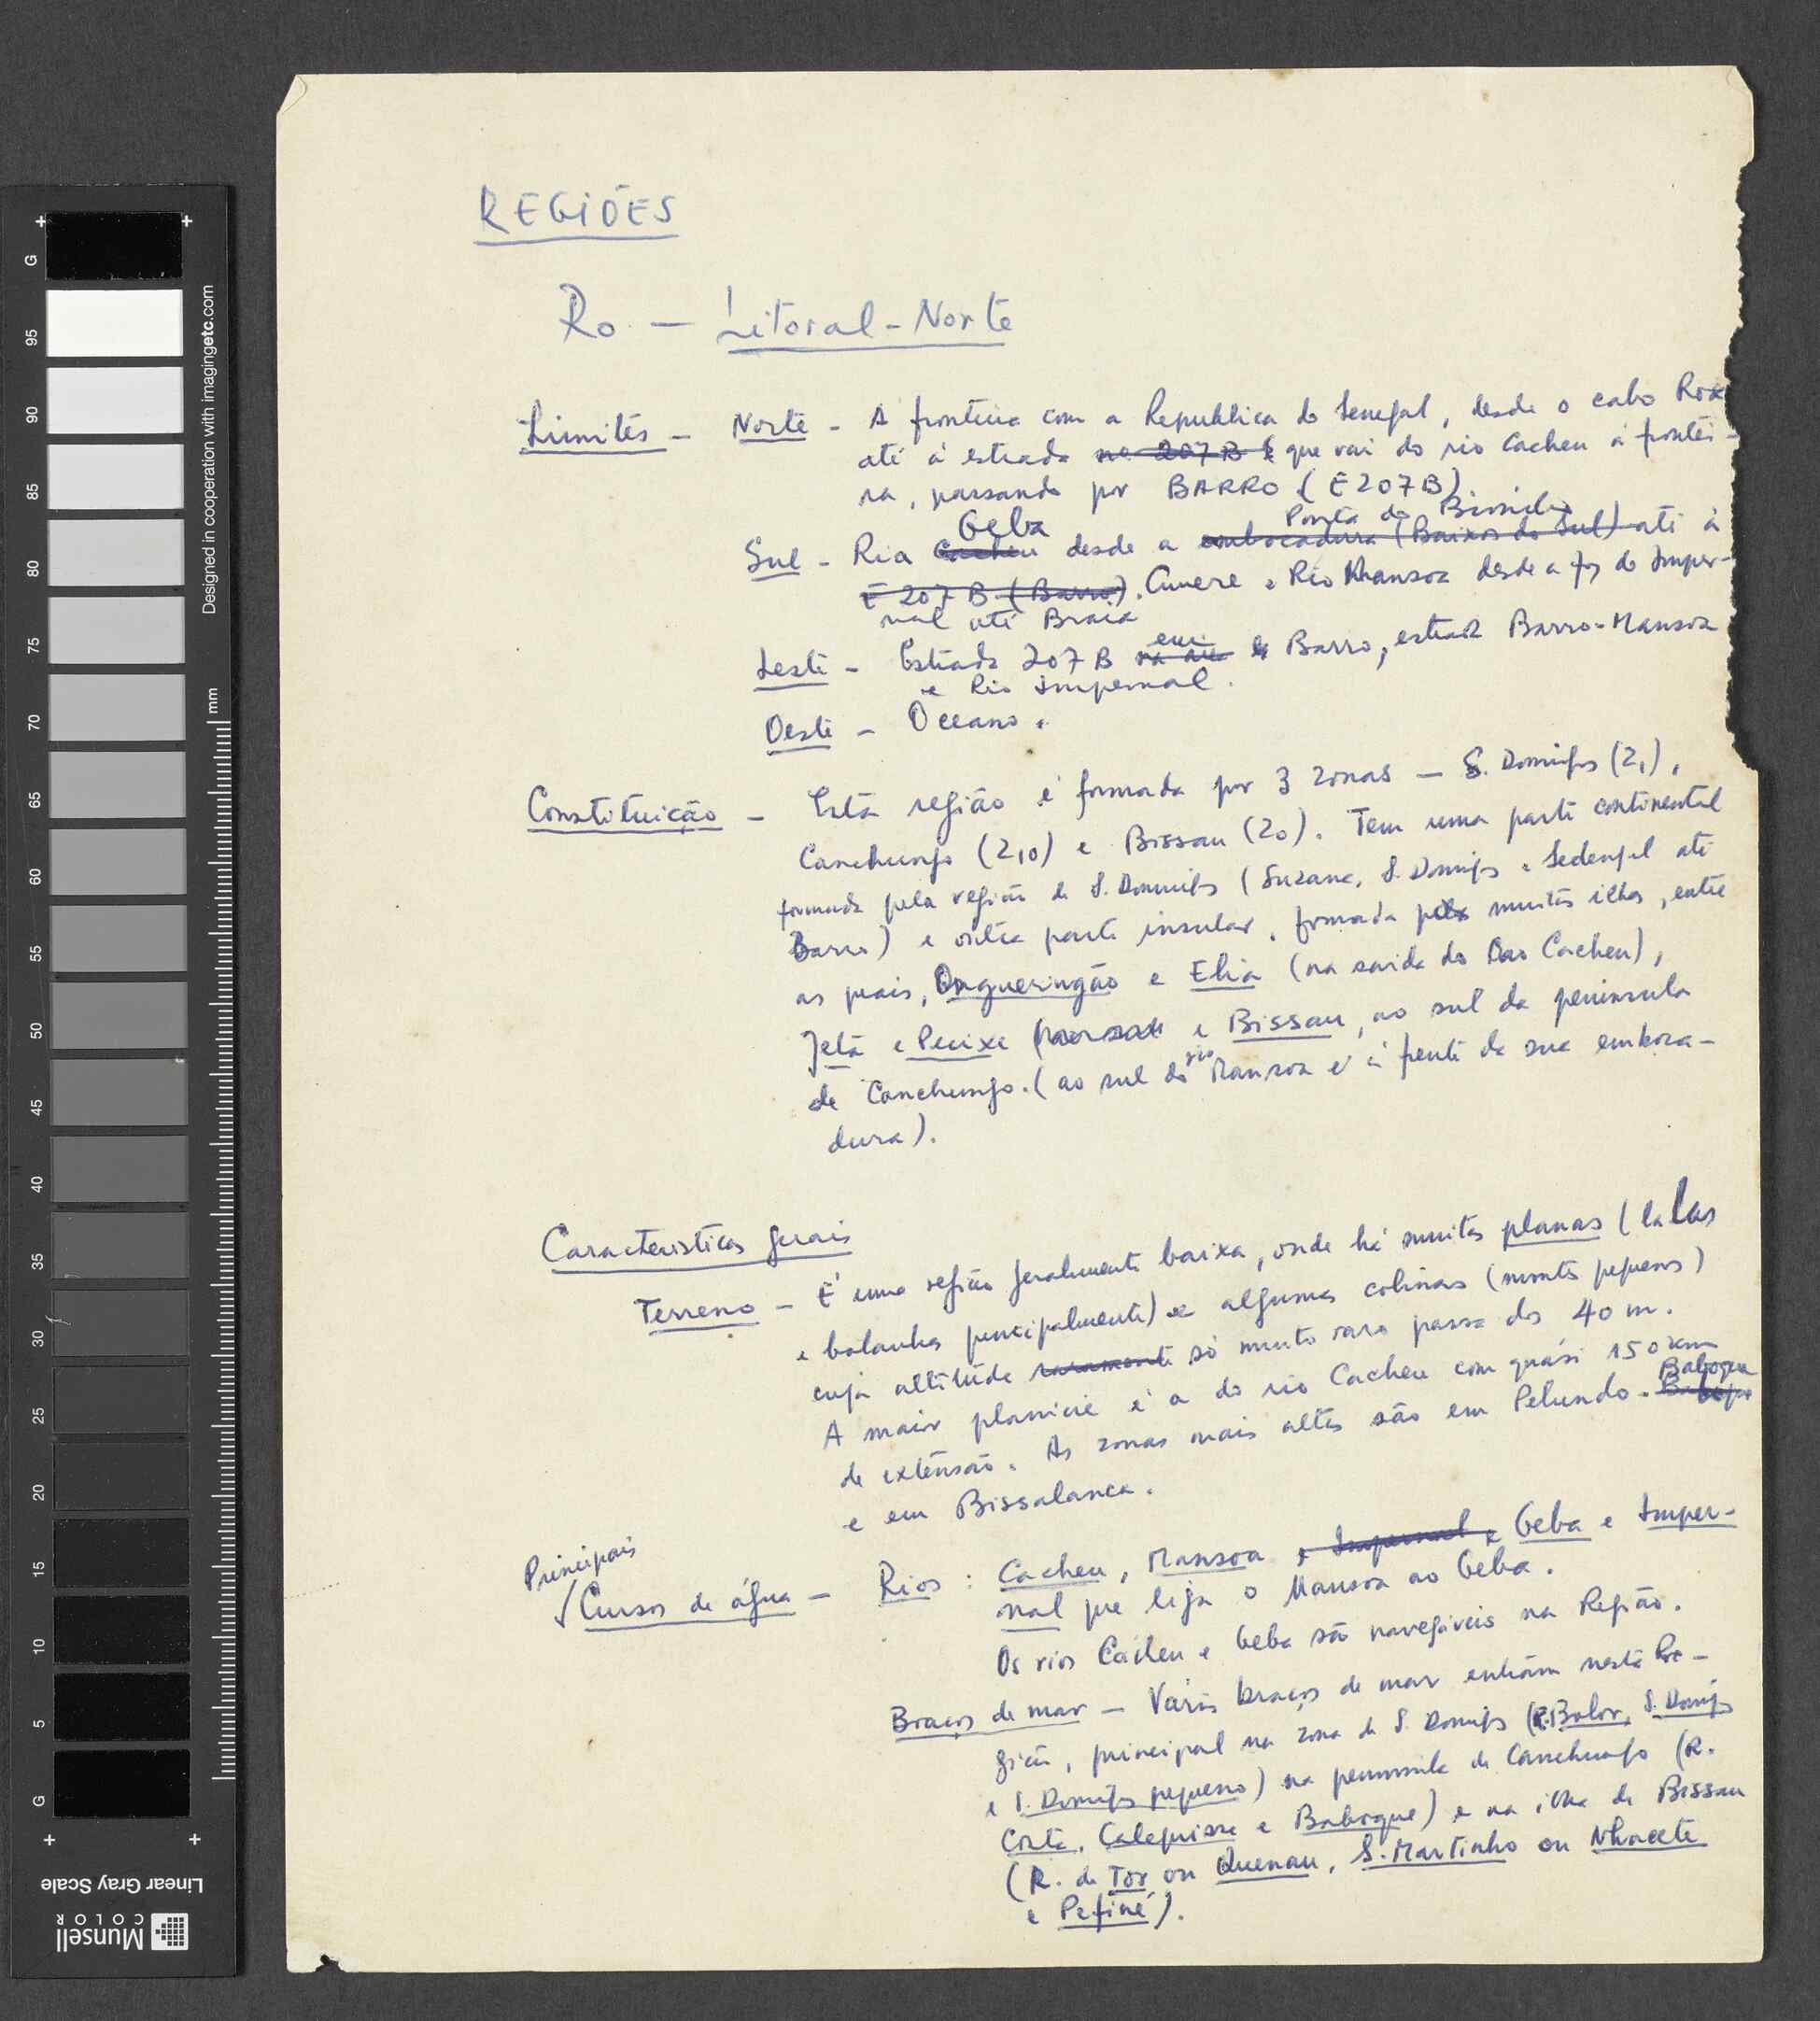 REGIÕES
Ro - Litoral-Norte
Limites - Norte - A fronteira com a Republica do Senegal, desde o cabo Rox
até à estrada no 207 B que vai do rio Cacheu à frontei-
ra, passando por BARRO (E 207 B)
Geba Ponta de
Sul - Ria Cacheu desde a embocadura (Baixos do Sul) até à
E 207 B (Barro). Cumere e Rio Mansoa desde a foz do Imper-
nal até Braia
em
Leste - Estrada 207 B Barro, estrada Barro-Mansoa
e Rio Impernal.
Oeste - Oceano.
Constituição - Esta região é formada por 3 zonas - S. Domingos (Z1),
Canchungo (Z10) e Bissau (Z0). Tem uma parte continental
formada pela região de S. Domingos (Suzana, S. Domingos e Sedengal até
Barro) e outra parte insular, formada pelas muitas ilhas, entre
as quais, Ongueringão e Elia (na saida do Rio Cacheu),
Jeta e Peixe e Bissau, ao sul da peninsula
rio
de Canchungo. (ao sul do Mansoa e à frente da sua emboca-
dura).
Caracteristicas gerais
Terreno - É uma região geralmente baixa, onde há muitas planas (lalas
e bolanhas principalmente) e algumas colinas (montes pequenos)
cuja altitude raramente só muito raro passa dos 40 m.
A maior planicie é a do rio Cacheu com quási 150 km
Baboque
de extensão. As zonas mais altas são em Pelundo.
e em Bissalanca.
Principais
Cursos de água - Rios : Cacheu, Mansoa e Impernal e Geba e Imper-
nal que liga o Mansoa ao Geba.
Os rios Cacheu e Geba são navegáveis na Região.
Braços de mar - Vários braços de mar entram nesta Re-
gião, principal na zona de S. Domingos (R. Bolor, S. Domingos
e S. Domingos pequeno) na peninsula de Canchungo (R.
Costa, Calequisse e Baboque) e na ilha de Bissau
(R. de Tor ou Quenau, S. Martinho ou Nhacete
e Pefiné).
Designed in cooperation with imagingetc.com
mm
G
95
90
85
80
75
70
65
60
55
50
45
40
35
30
25
20
15
10
5
G
Linear Gray Scale
Munsell
COLOR